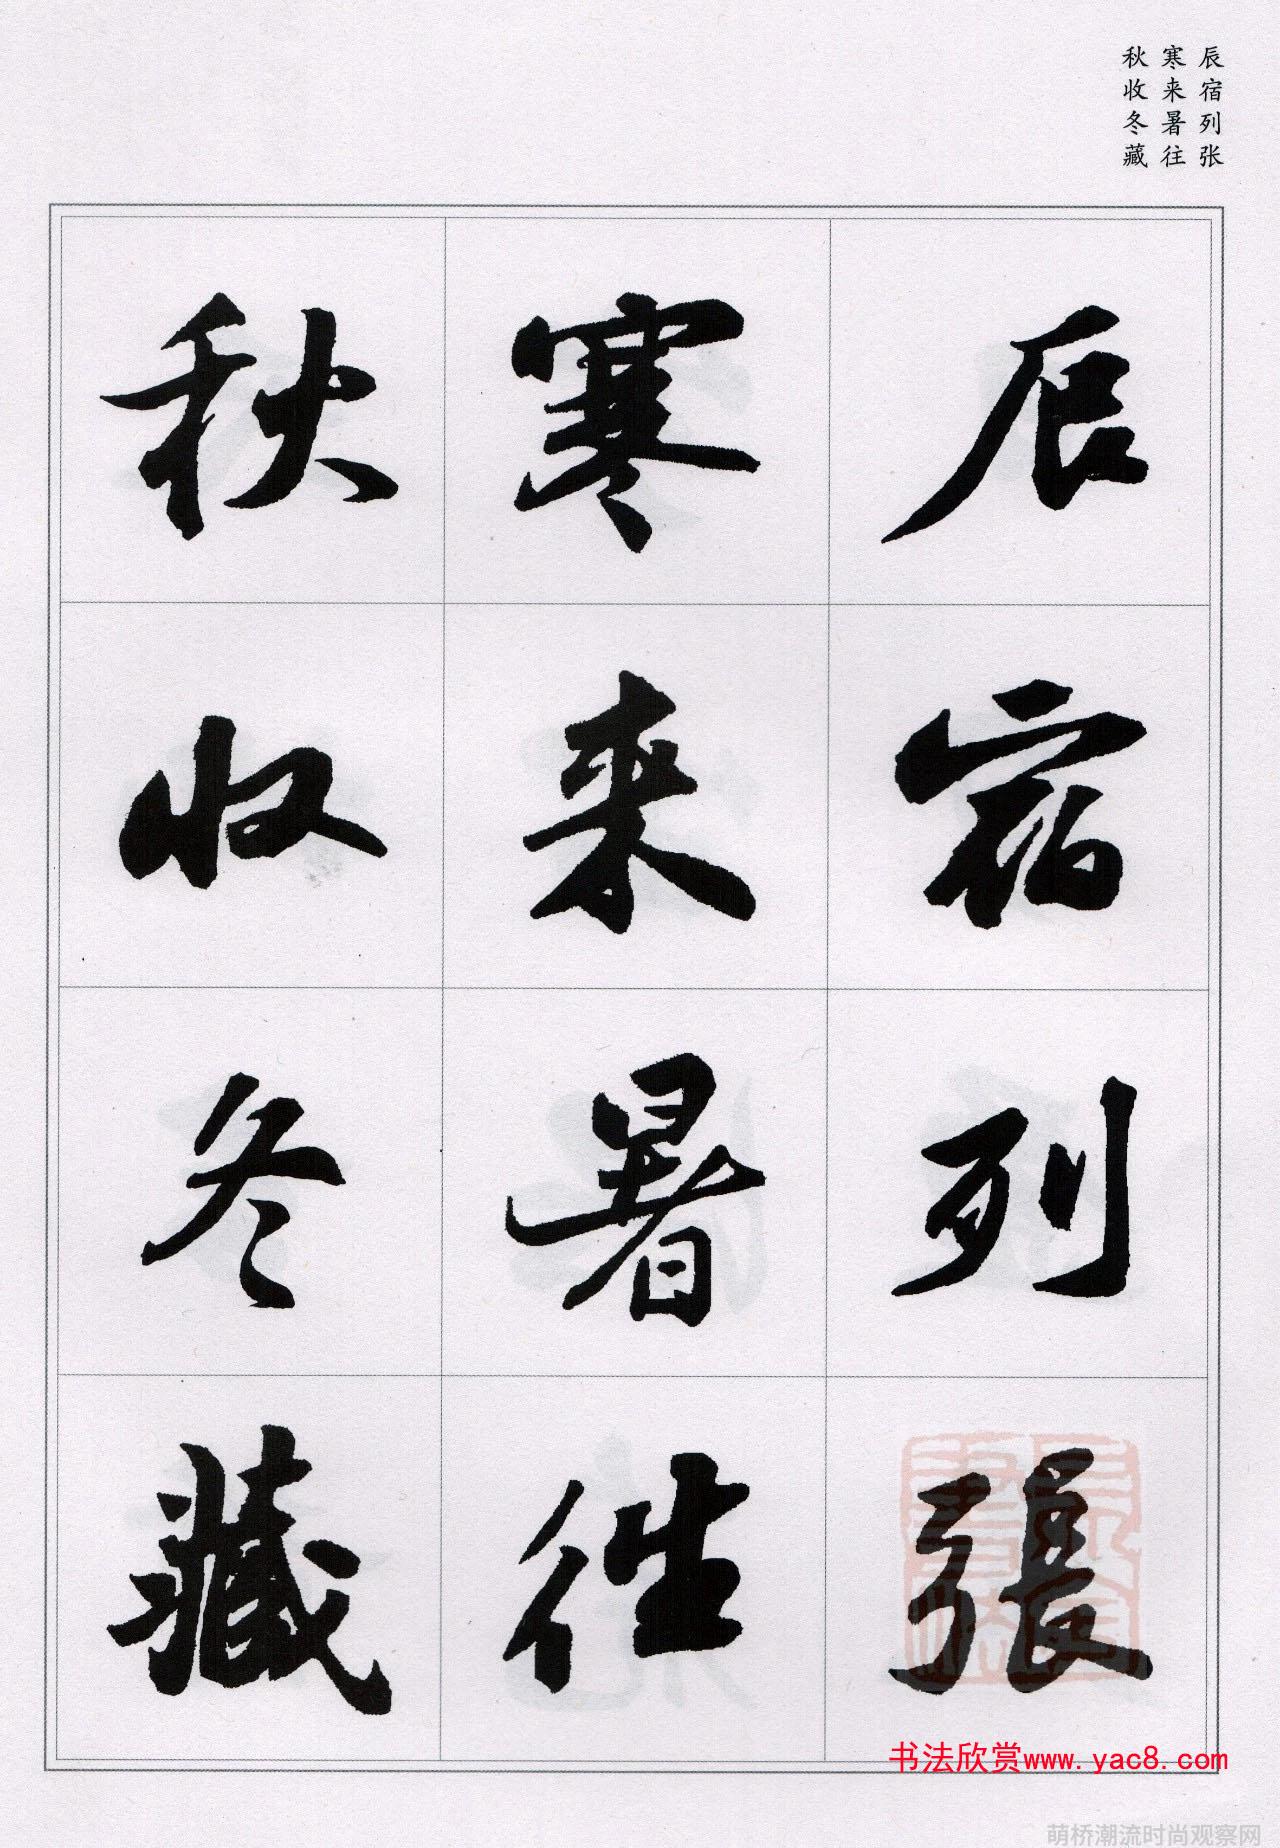 辰宿列张
寒来暑往
秋收冬藏
辰宿列張
寒来暑往
秋收冬藏
书法欣赏www.yac8.com
萌桥潮流时尚观察网